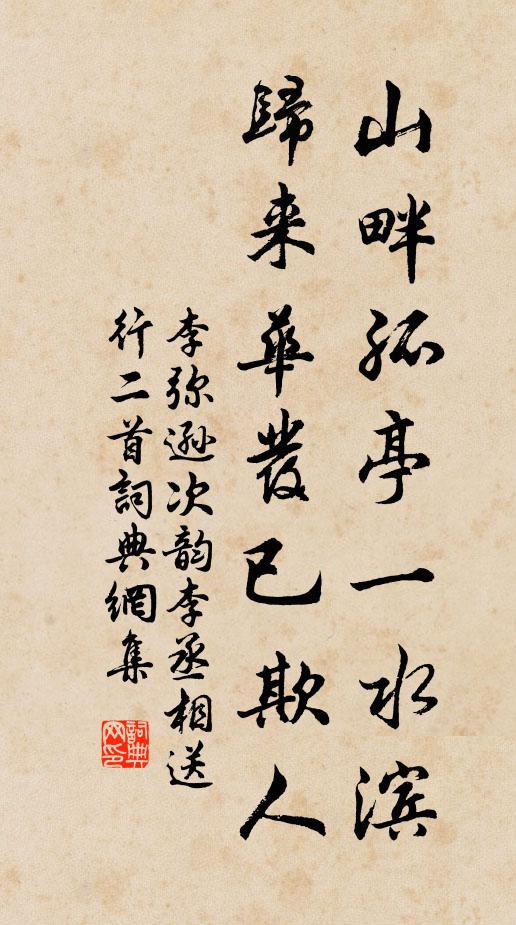 山畔孤亭一水滨
歸来華發已欺人
李弥遜次韵李丞相送
行二首詞典網集
詞典
网印